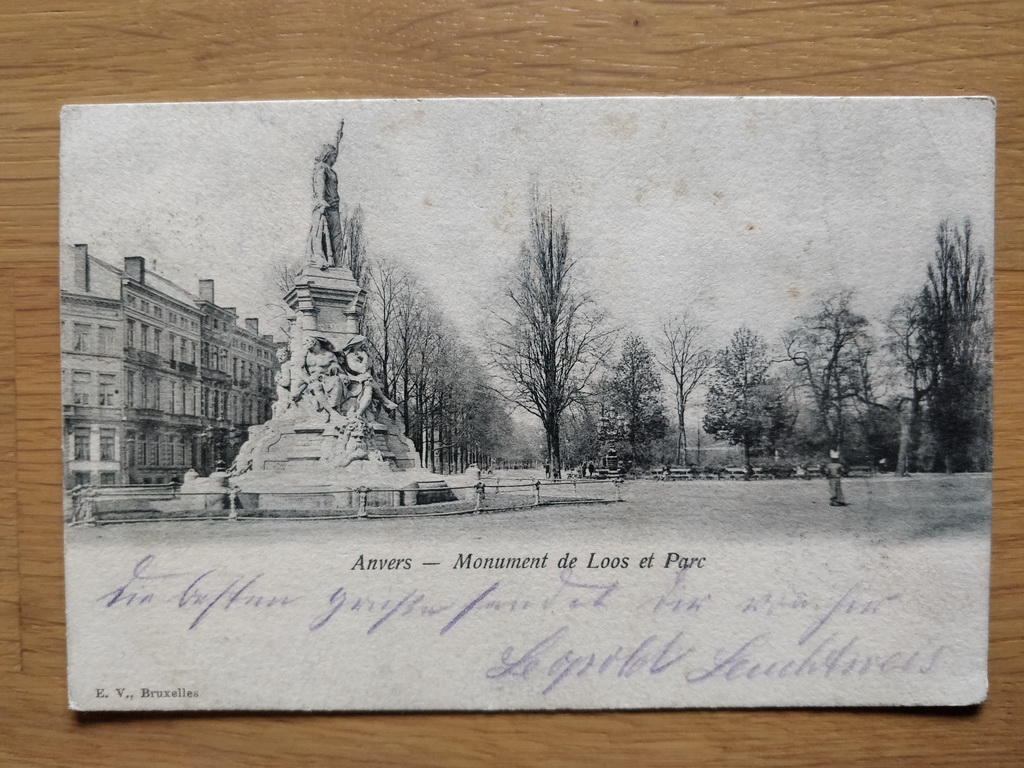 Anvers — Monument de Loos et Parc
Die besten Grüße sendet dir
Leopold Leuchtweis
E. V., Bruxelles